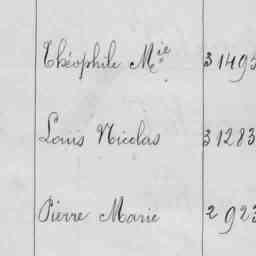 Théophile Mie 31495
Louis Nicolas 31283
Pierre Marie 2923